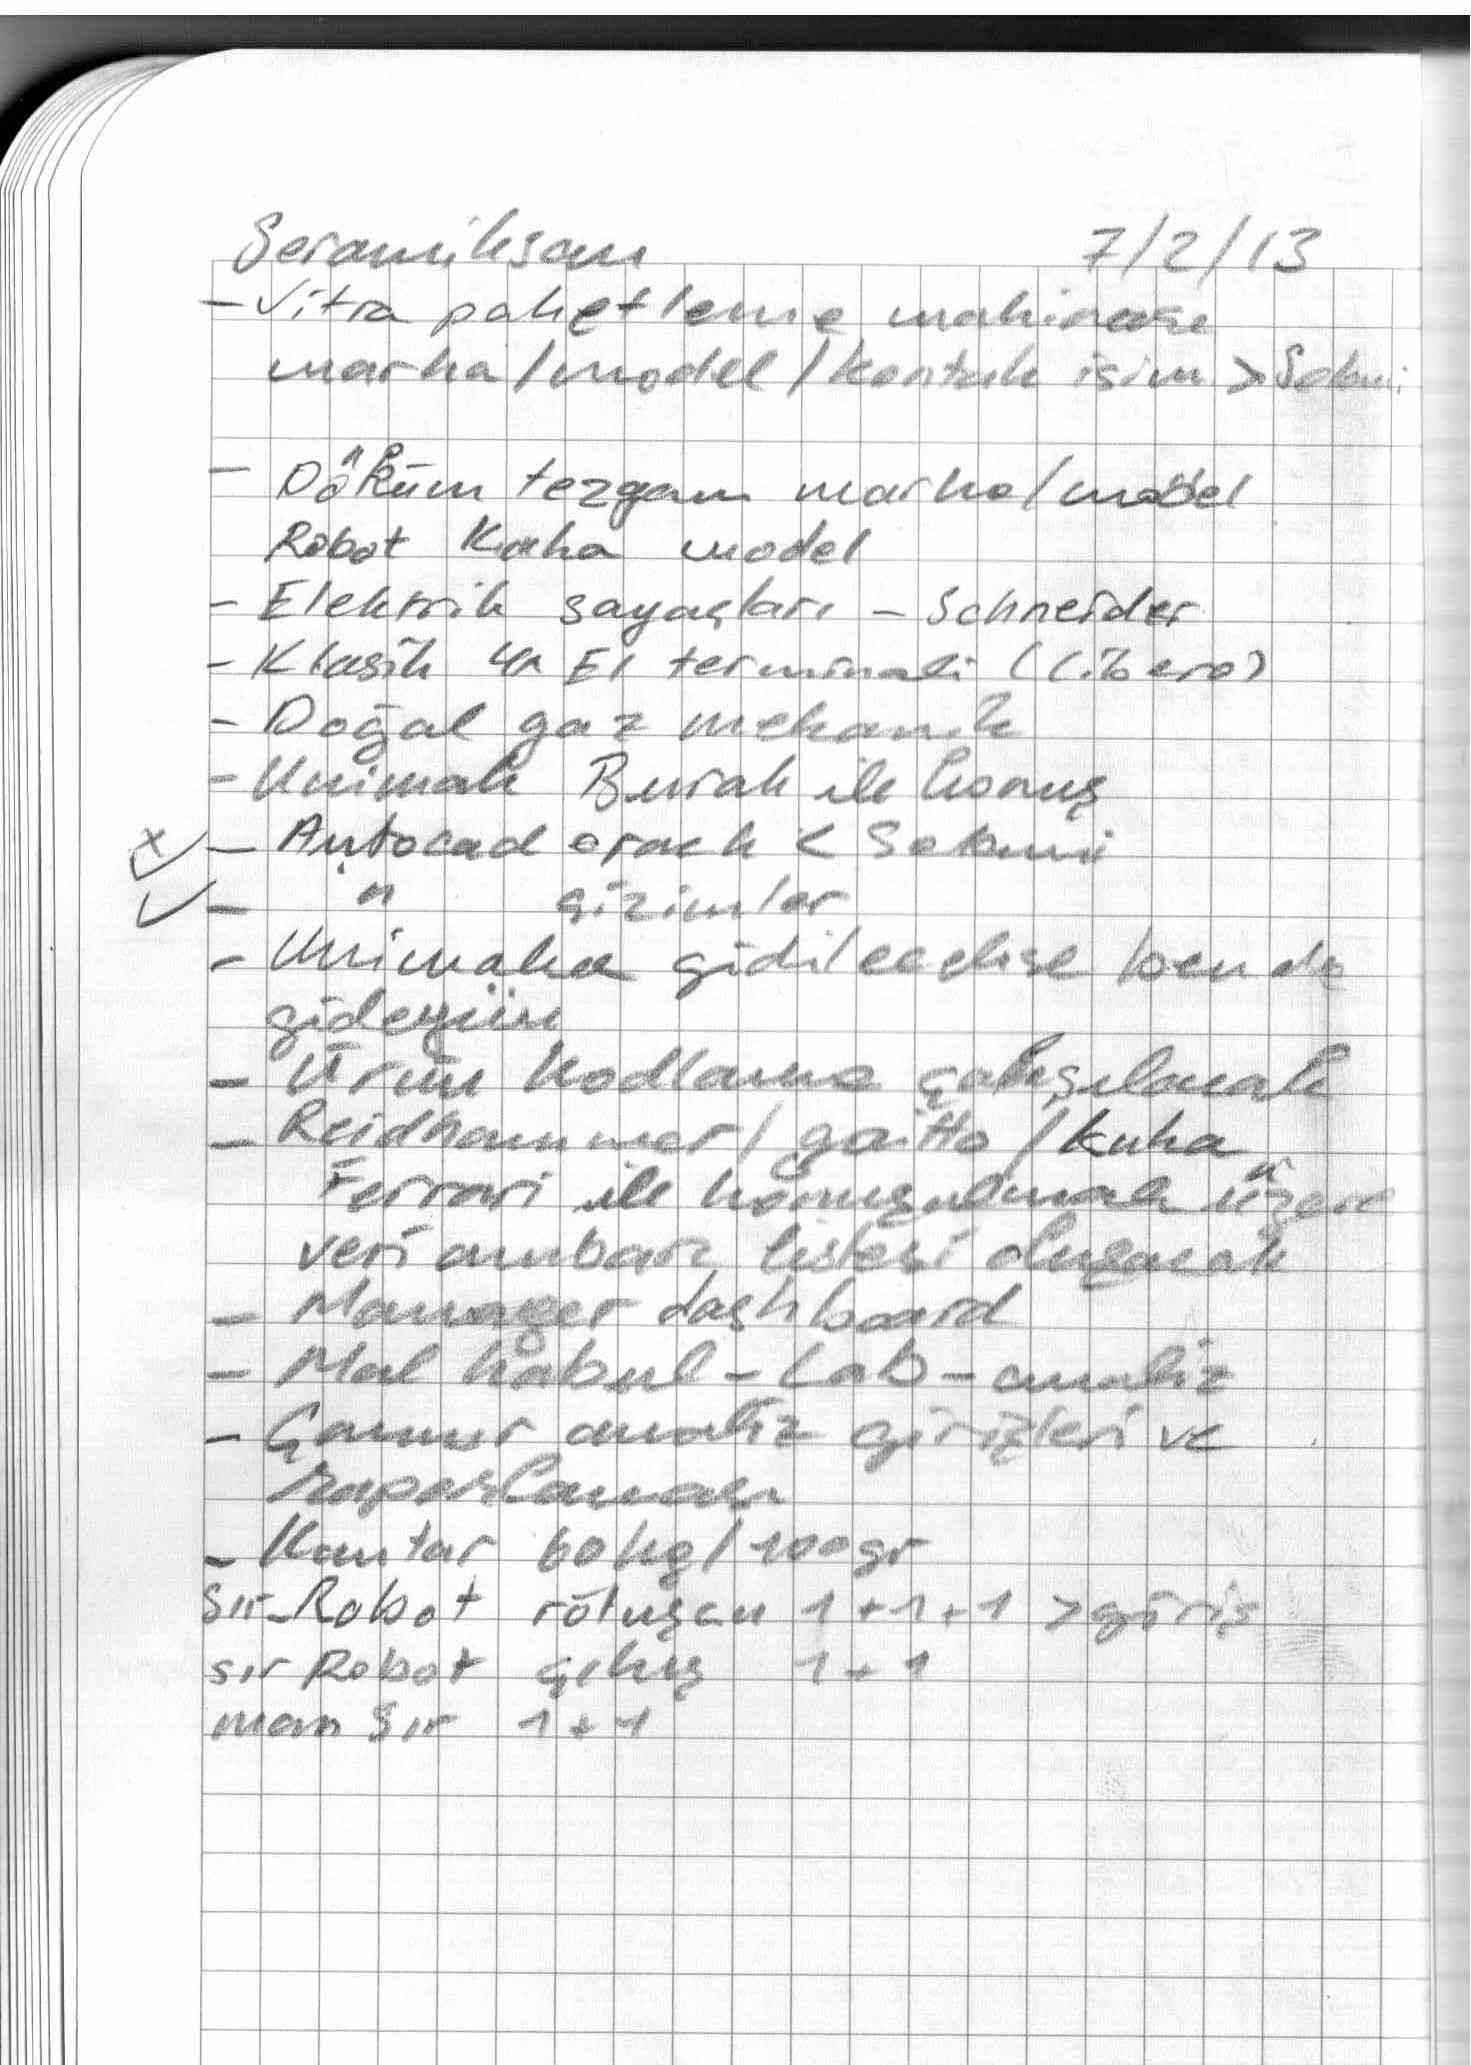 Seramiksan 7/2/13
- Vitra paketleme makinası
marka/model/kontak isim > Sabmi
- Döküm tezgam marka/model
Robot Kuka model
- Elektrik sayaçları - Schneider
- Klasik 4x El terminali (Libero)
- Doğal gaz mekanik
- Unimak Burak ile konuş
x ✓ - Autocad erack < Sabmi
✓ - " çizimler
- Unimaka gidilecekse ben de
gideyim
- Ürün kodlama çalışılacak
- Reidhammer/gaitto/kuka
Ferrari ile konuşulmak üzere
veri ambarı listesi oluşacak
- Manager dashboard
- Mal kabul - Lab - analiz
- Çamur analiz girişleri ve
raporlaması
- Kantar 60kg/100gr
Sır Robot rötuşçu 1+1+1 > giriş
sır Robot çıkış 1+1
man Sır 1+1